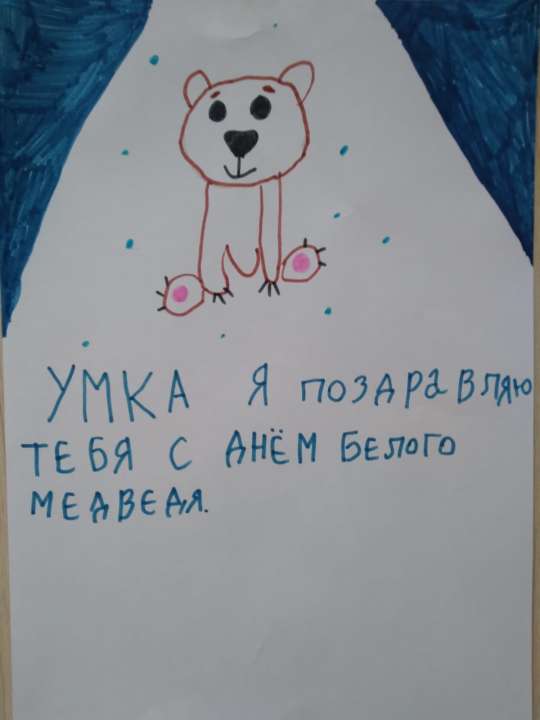 УМКА Я ПОЗДРаВЛЯЮ
ТЕБЯ С ДНЁМ БЕЛОГО
МЕДВЕДЯ.